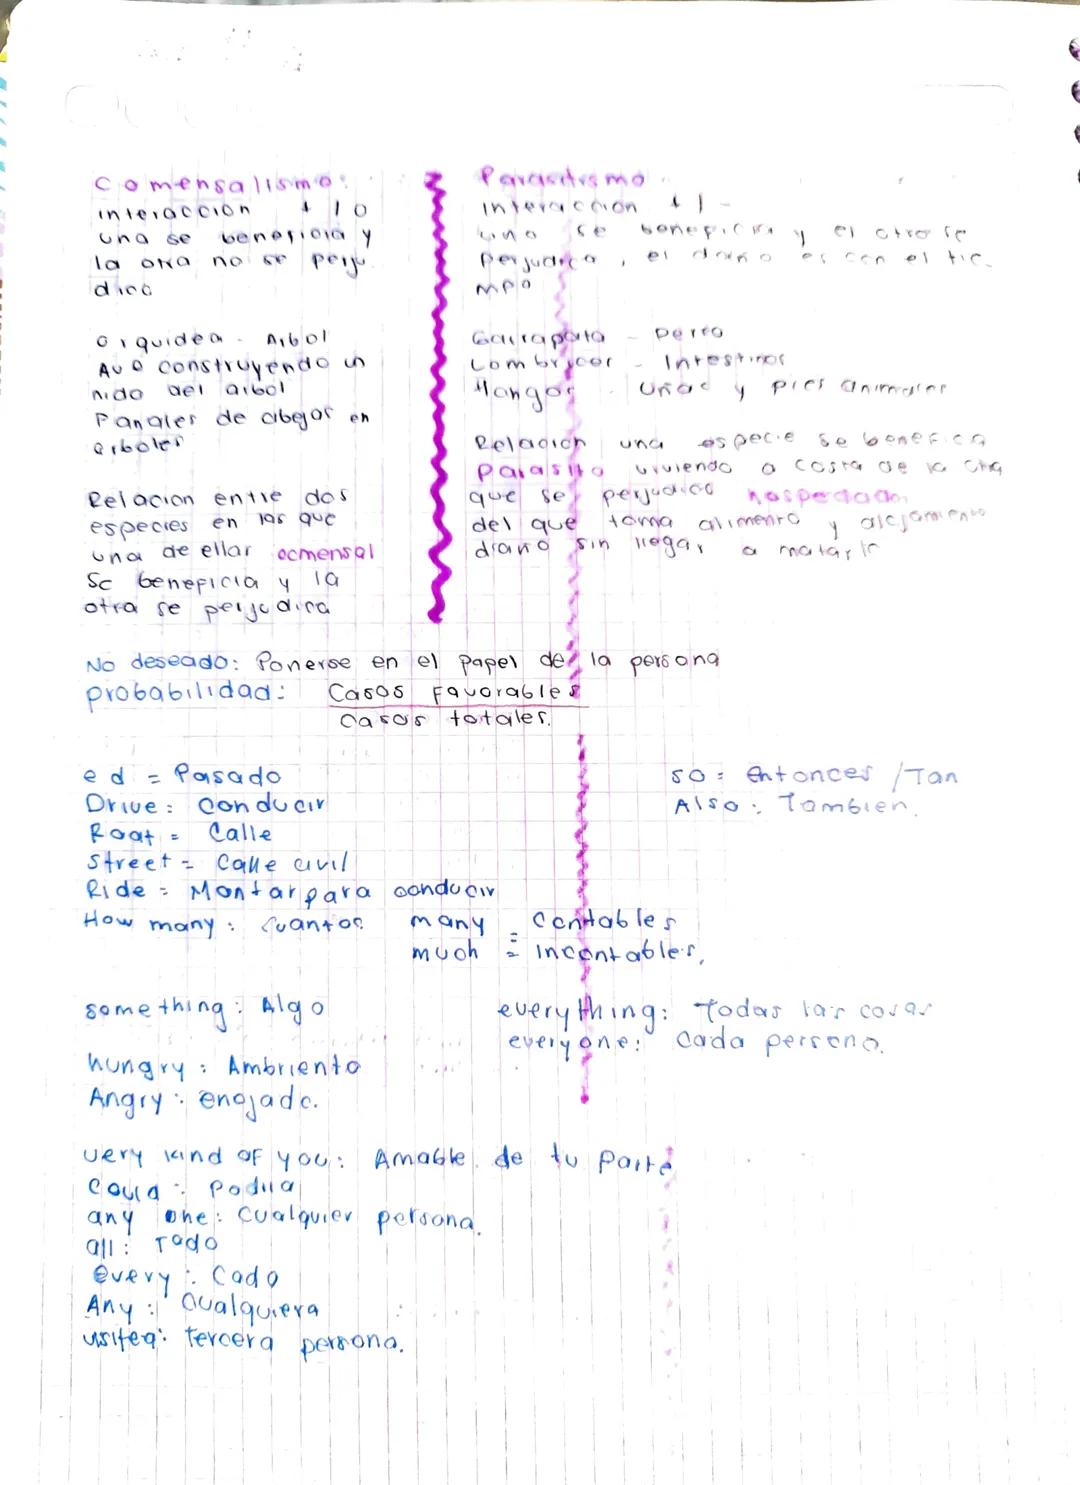 Comensalismo:
interaccion + 1 0
una se beneficia y
la otra no se perju
dica
Orquidea - Arbol
Ave construyendo un
nido del arbol
Panales de abejas en
arboles
Relacion entre dos
especies en las que
una de ellas ocmensal
Se beneficia y la
otra se perjudica
Parasitismo
interaccion + 1 -
uno se beneficia y el otro se
perjudica, el daño es con el tie-
mpo
Garrapata - perro
Lombrices - Intestinos
Hongos - uñas y pies animales
Relacion una especie se benefica
parasito viviendo a costa de la otra
que se perjudica
del que toma alimento y alojamiento
diario sin llegar a matarlo
No deseado: Ponerse en el papel de la persona
probabilidad: Casos Favorables
Casos totales.
ed = Pasado
Drive: Conducir
Roat = Calle
Street = Calle civil
Ride = Montar para conducir
How many: cuantos many = Contables
much = Incontables,
so = Entonces / Tan
Also: Tambien.
something: Algo
everything: Todas las cosas
everyone: Cada persona.
hungry: Ambriento
Angry: enojado.
very kind of you: Amable de tu parte
Could: Podria
any one: Cualquier persona.
all: Todo
Every: Cada
Any: Cualquiera
tercera persona.